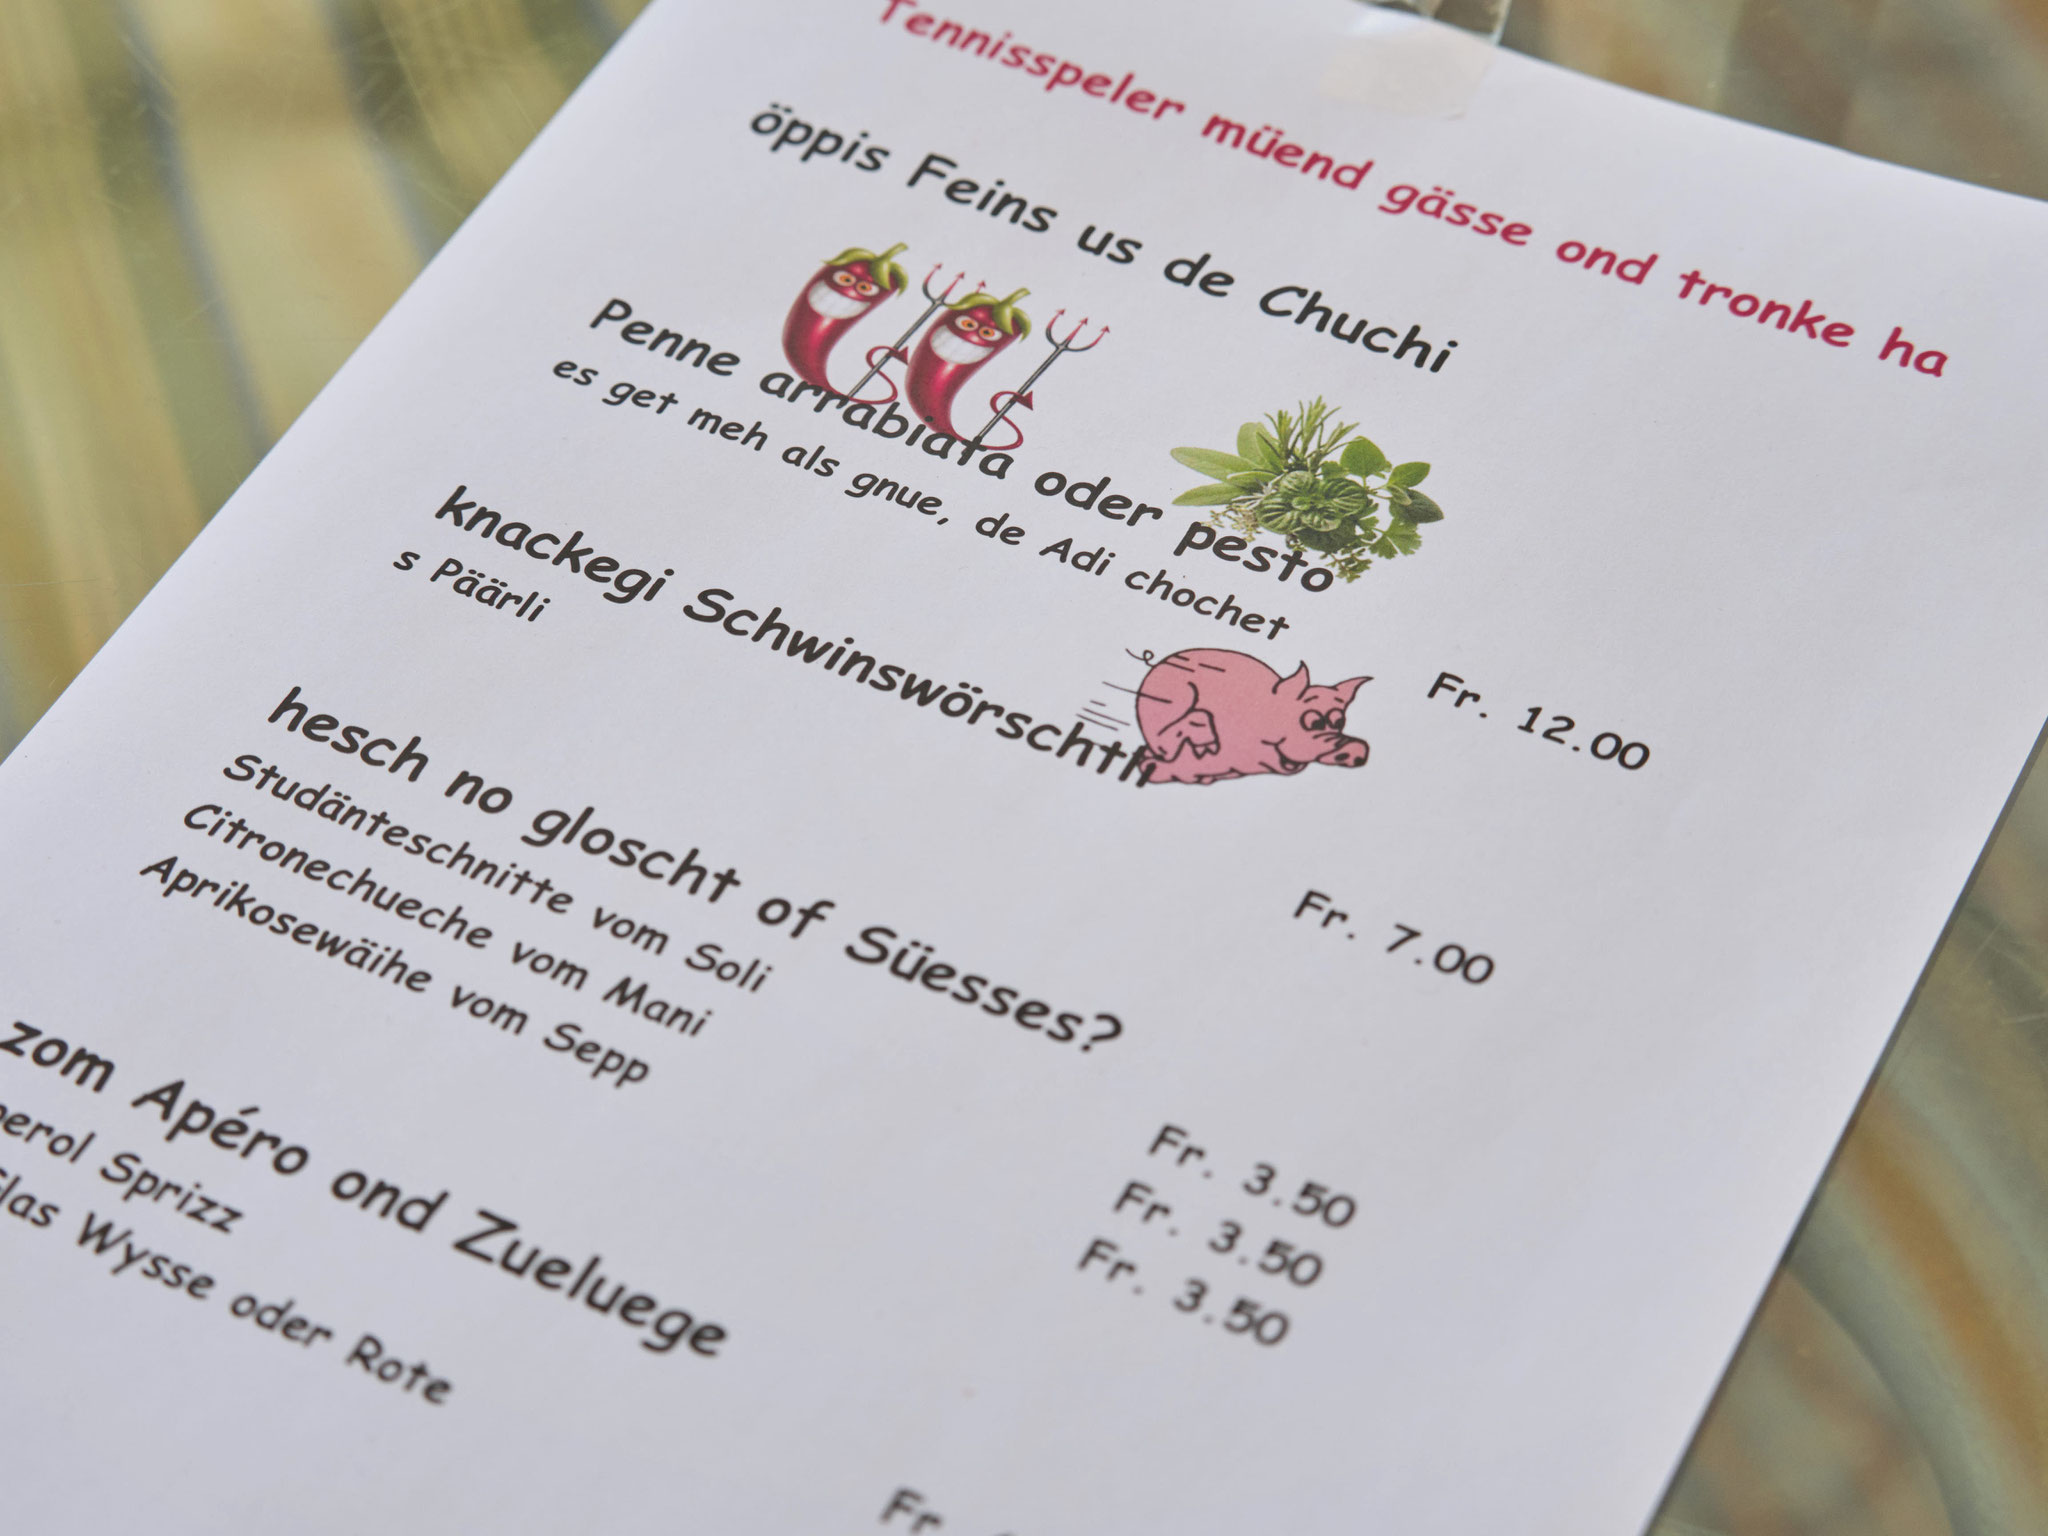 Tennisspeler müend gässe ond tronke ha
öppis Feins us de Chuchi
Penne arrabiata oder pesto
es get meh als gnue, de Adi chochet
Fr. 12.00
knackegi Schwinswörschtli
s Päärli
Fr. 7.00
hesch no gloscht of Süesses?
Studänteschnitte vom Soli
Fr. 3.50
Citronechueche vom Mani
Fr. 3.50
Aprikosewäihe vom Sepp
Fr. 3.50
zom Apéro ond Zueluege
Sprizz
Wysse oder Rote
Fr.